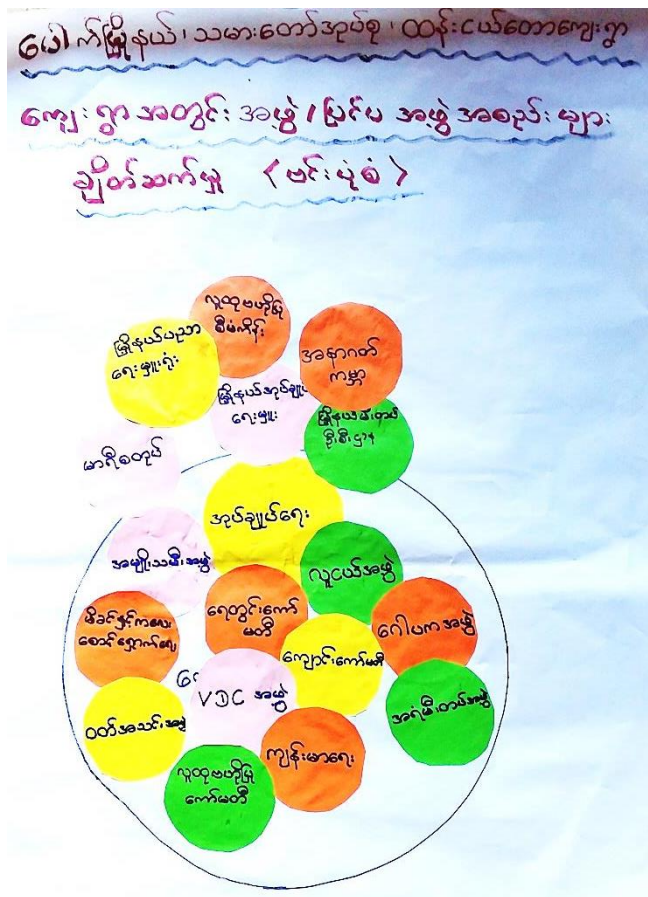 ပေါက်မြို့နယ်၊ သမားတော်အုပ်စု၊ ထန်းငယ်တောကျေးရွာ
ကျေးရွာအတွင်းအဖွဲ့/ပြင်ပ အဖွဲ့အစည်းများ
ချိတ်ဆက်မှု <ဗင်းပုံစံ>
လူထုဗဟိုပြု
စီမံကိန်း
မြို့နယ်ပညာ
ရေးမှူးရုံး
အနာဂတ်
ကမ္ဘာ
မြို့နယ်အုပ်ချုပ်
ရေးမှူး
မြို့နယ်မီးသတ်
ဦးစီးဌာန
မာရီစတုပ်
အုပ်ချုပ်ရေး
အမျိုးသမီးအဖွဲ့
လူငယ်အဖွဲ့
ရေတွင်းကော်
မတီ
မိခင်နှင့်ကလေး
စောင့်ရှောက်ရေး
ဂေါပကအဖွဲ့
ကျောင်းကော်မတီ
VDC အဖွဲ့
အရံမီးတပ်ဖွဲ့
ဝတ်အသင်းအဖွဲ့
ကျန်းမာရေး
လူထုဗဟိုပြု
ကော်မတီ